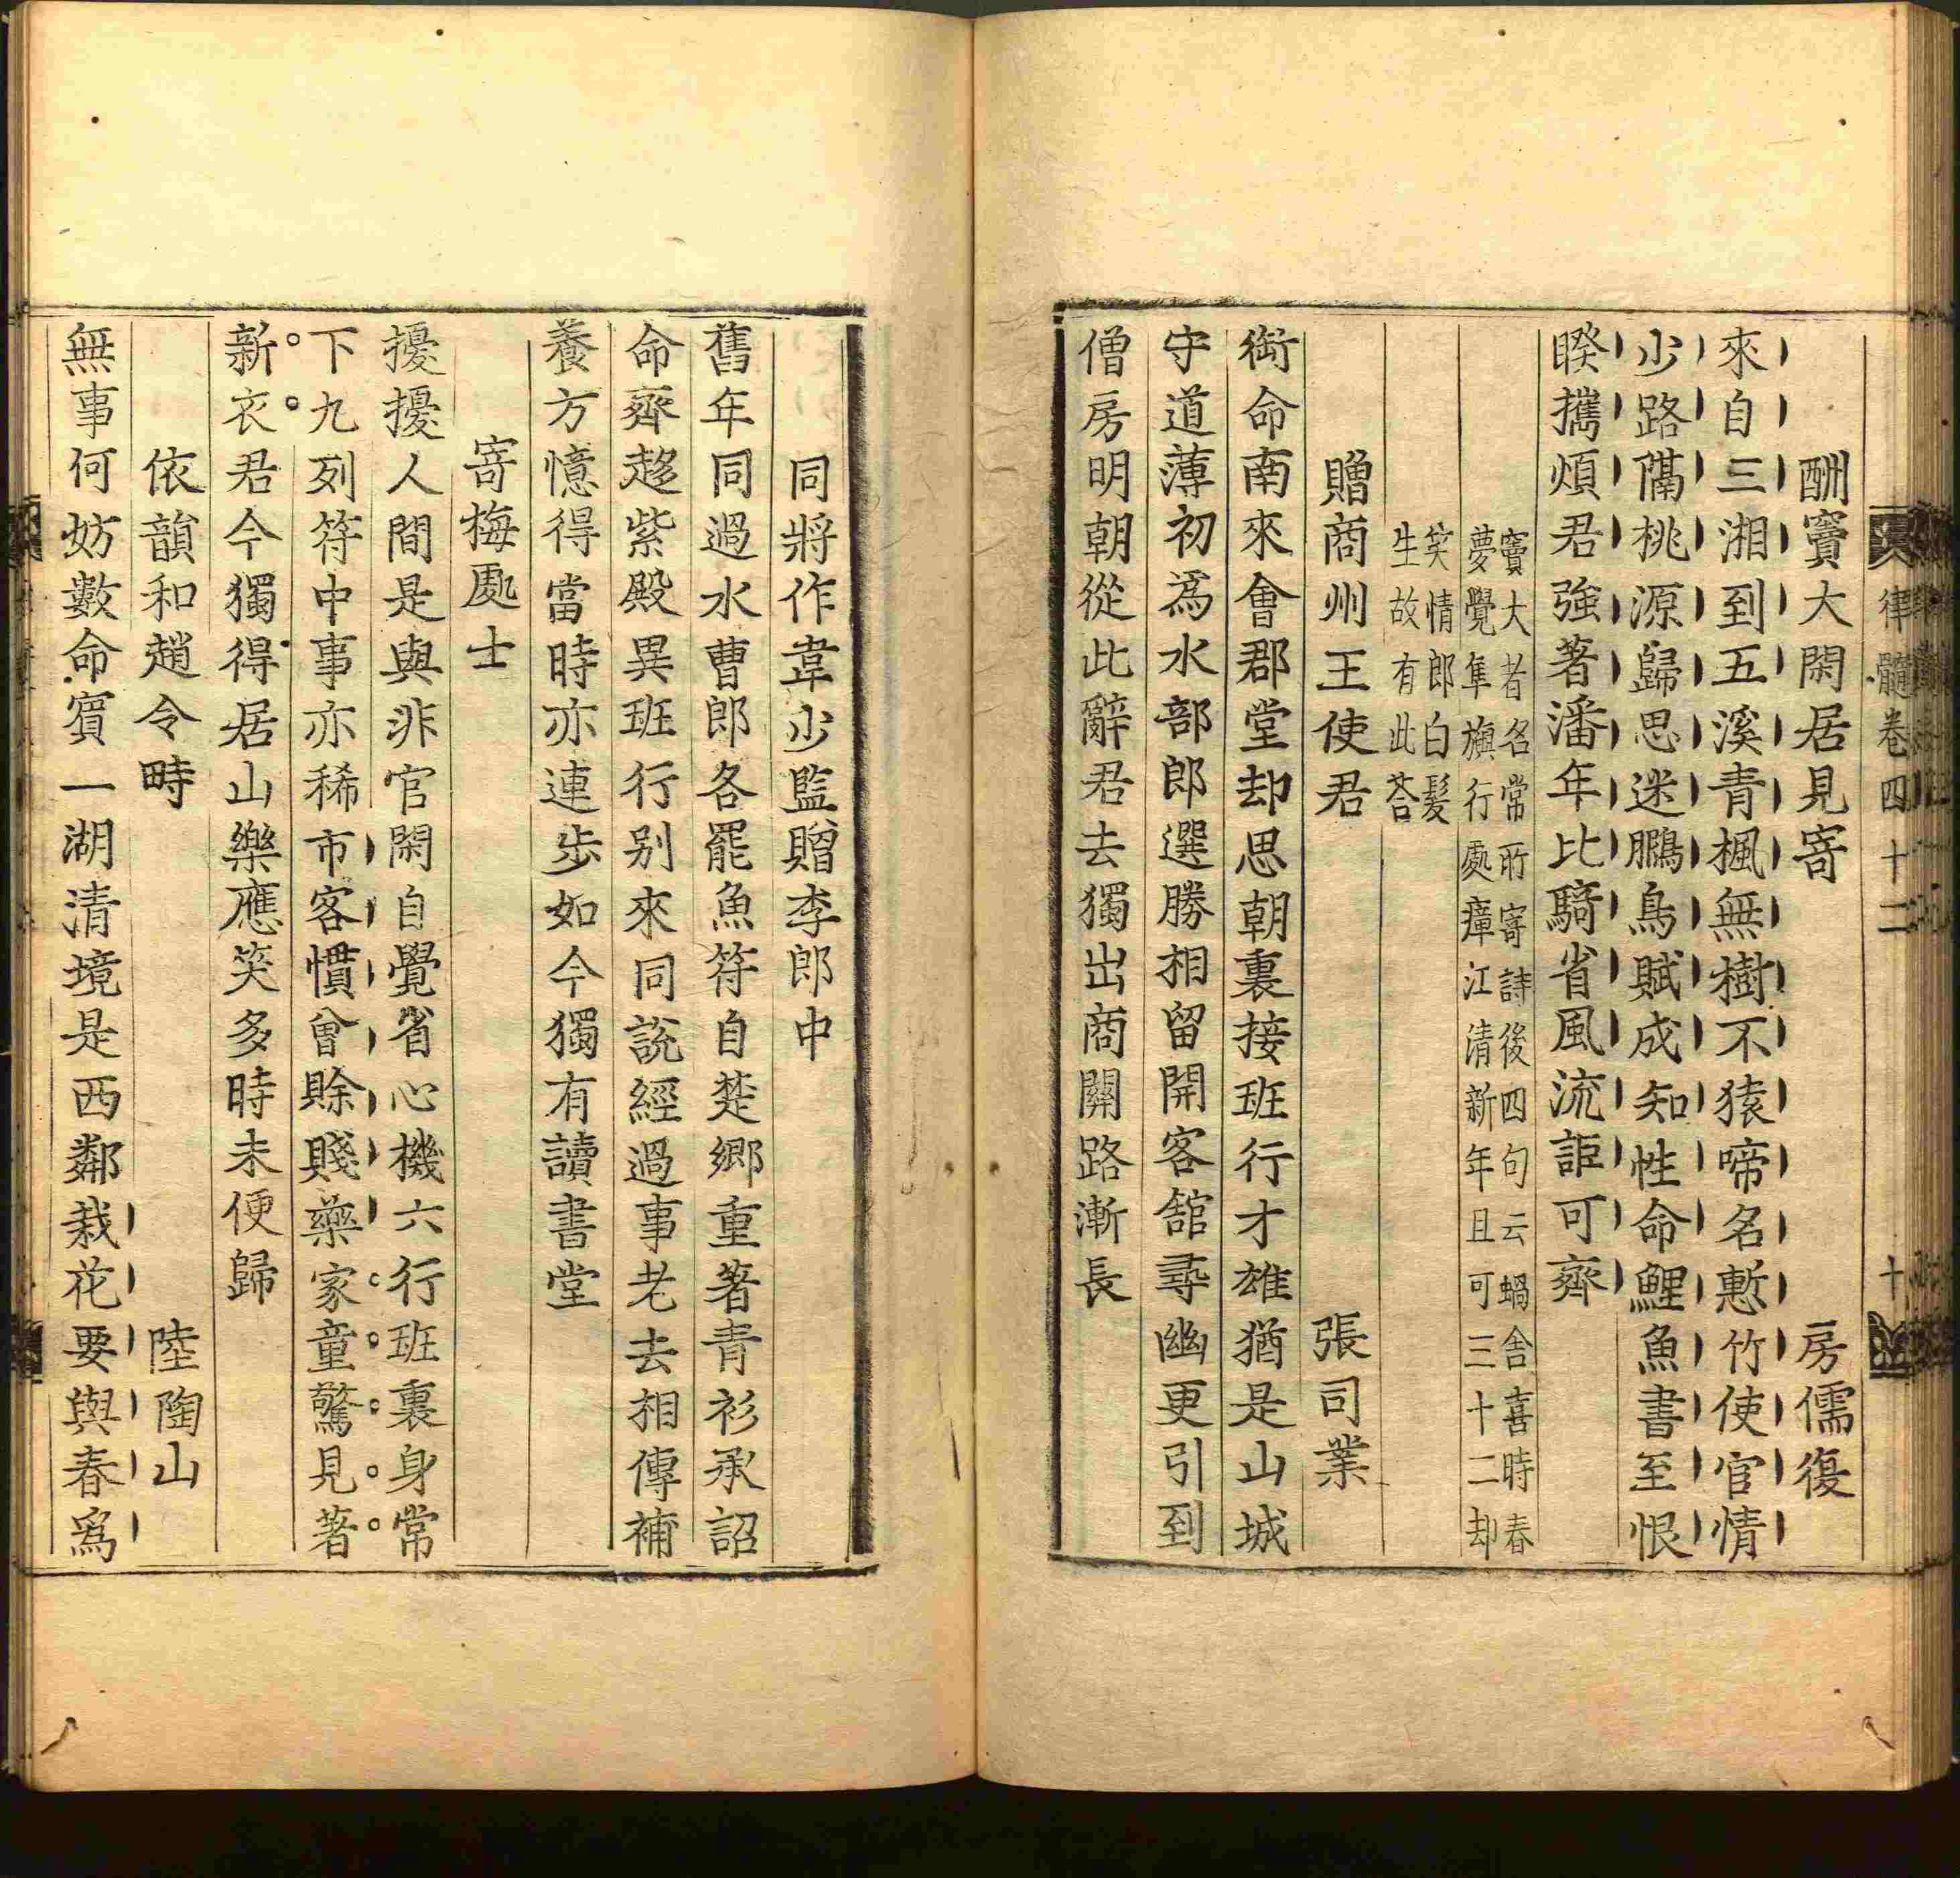 律髓卷四十二 十
酬竇大閑居見寄 房儒復
來自三湘到五溪青楓無樹不猿啼名慙竹使官情
少路隔桃源歸思迷鵬鳥賦成知性命鯉魚書至恨
睽攜煩君強著潘年比騎省風流詎可齊
竇大者名常所寄詩後四句云蝸舍喜時春
夢覺隼旟行處瘴江清新年且可三十二却
笑情郎白髪
生故有此荅
贈商州王使君 張司業
衔命南來會郡堂却思朝裏接班行才雄猶是山城
守道薄初爲水部郎選勝相留開客舘尋幽更引到
僧房明朝從此辭君去獨出商關路漸長
同將作韋少監贈李郎中
舊年同過水曹郎各罷魚符自楚郷重著青衫承詔
命齊趍紫殿異班行别來同説經過事老去相傳補
養方憶得當時亦連歩如今獨有讀書堂
寄梅處士
擾擾人間是與非官閑自覺省心機六行班裏身常
下九列符中事亦稀市客慣曾賒賤藥家童驚見著
新衣君今獨得居山樂應笑多時未便歸
依韻和趙令畤 陸陶山
無事何妨數命賔一湖清境是西鄰栽花要與春爲